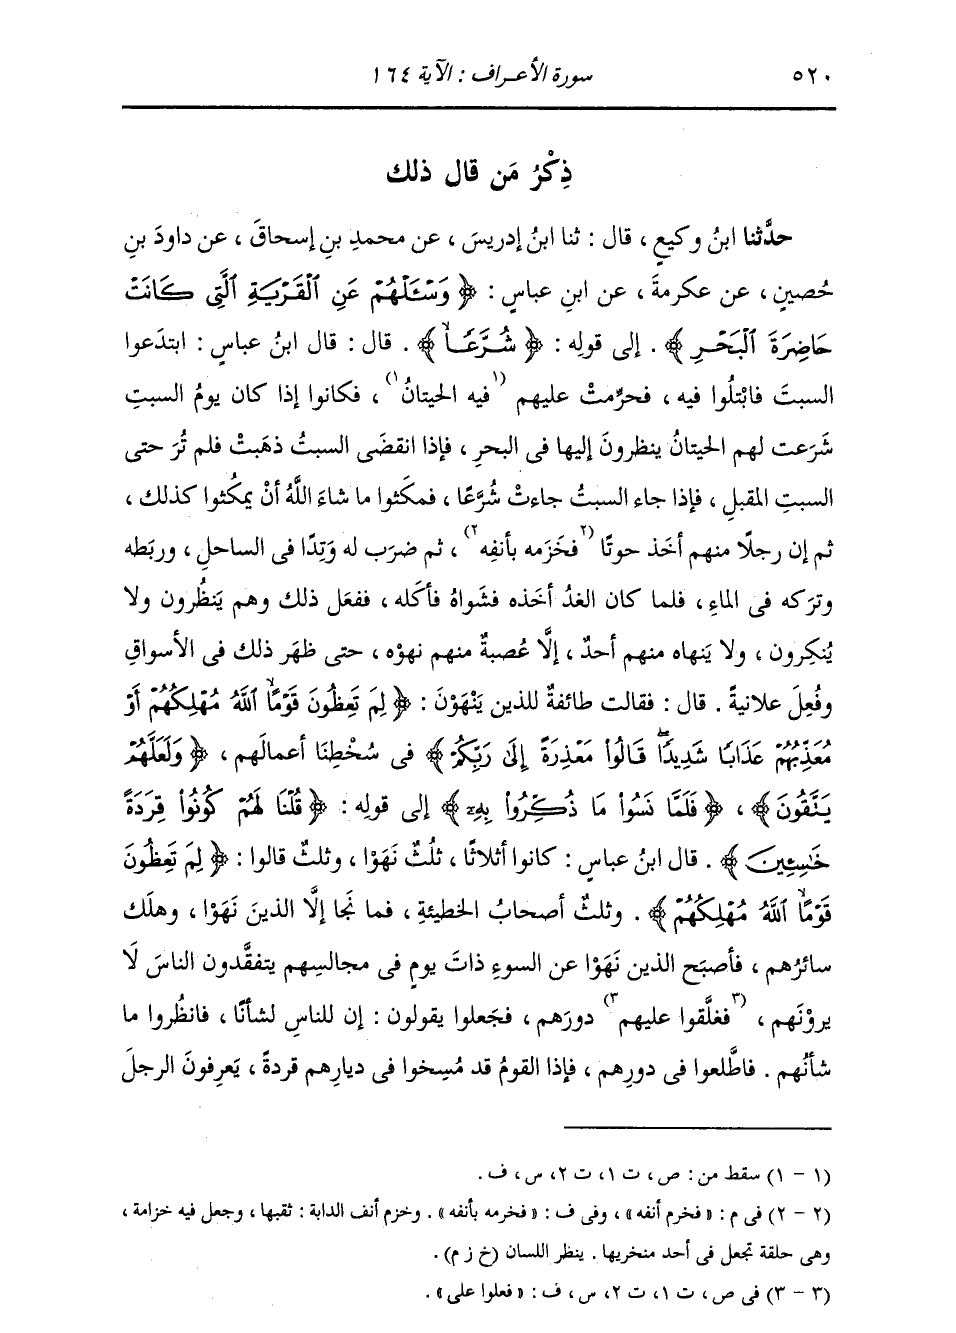 ٥٢٠
سورة الأعراف : الآية ١٦٤
ذِكْرُ مَن قال ذلك
حدَّثنا ابنُ وكيعٍ ، قال : ثنا ابنُ إدريسَ ، عن محمدِ بنِ إسحاقَ ، عن داودَ بنِ
حُصينٍ ، عن عكرمةَ ، عن ابنِ عباسٍ : ﴿ وَسْئَلْهُمْ عَنِ ٱلْقَرْيَةِ ٱلَّتِى كَانَتْ
حَاضِرَةَ ٱلْبَحْرِ ﴾ . إلى قولِه : ﴿ شُرَّعًاۙ ﴾ . قال : قال ابنُ عباسٍ : ابتدَعوا
السبتَ فابْتُلُوا فيه ، فحرِّمتْ عليهم (١فيه الحيتانُ١) ، فكانوا إذا كان يومُ السبتِ
شَرَعت لهم الحيتانُ ينظرونَ إليها فى البحرِ ، فإذا انقضَى السبتُ ذهَبتْ فلم تُرَ حتى
السبتِ المقبلِ ، فإذا جاء السبتُ جاءتْ شُرَّعًا ، فمكثوا ما شاءَ اللَّهُ أنْ يمكُثوا كذلك ،
ثم إن رجلًا منهم أخَذ حوتًا (٢فخَزَمه بأنفِه٢) ، ثم ضرَب له وَتِدًا فى الساحلِ ، وربَطه
وترَكه فى الماءِ ، فلما كان الغدُ أخَذه فشَواهُ فأكَله ، ففعَل ذلك وهم يَنظُرون ولا
يُنكِرون ، ولا يَنهاه منهم أحدٌ ، إلَّا عُصبةٌ منهم نهوْه ، حتى ظهَر ذلك فى الأسواقِ
وفُعِلَ علانيةً . قال : فقالت طائفةٌ للذين يَنْهَوْنَ : ﴿ لِمَ تَعِظُونَ قَوْمًاۙ ٱللَّهُ مُهْلِكُهُمْ أَوْ
مُعَذِّبُهُمْ عَذَابًا شَدِيدًاۖ قَالُوا۟ مَعْذِرَةً إِلَىٰ رَبِّكُمْ ﴾ فى سُخْطِنَا أعمالَهم ، ﴿ وَلَعَلَّهُمْ
يَتَّقُونَ ﴾ ، ﴿ فَلَمَّا نَسُوا۟ مَا ذُكِّرُوا۟ بِهِۦٓ ﴾ إلى قولِه : ﴿ قُلْنَا لَهُمْ كُونُوا۟ قِرَدَةً
خَٰسِـِٔينَ ﴾ . قال ابنُ عباسٍ : كانوا أثلاثًا ، ثلُثٌ نَهَوْا ، وثلثٌ قالوا : ﴿ لِمَ تَعِظُونَ
قَوْمًاۙ ٱللَّهُ مُهْلِكُهُمْ ﴾ . وثلثٌ أصحابُ الخطيئةِ ، فما نَجَا إلَّا الذينَ نَهَوْا ، وهلَك
سائرُهم ، فأصبَح الذين نَهَوْا عن السوءِ ذاتَ يومٍ فى مجالسِهم يتفقَّدون الناسَ لَا
يروْنَهم ، (٣فغلَّقوا عليهم٣) دورَهم ، فجَعلوا يقولون : إن للناسِ لشأنًا ، فانظُروا ما
شأنُهم . فاطَّلعوا فى دورِهم ، فإذا القومُ قد مُسِخوا فى ديارِهم قردةً ، يَعرِفونَ الرجلَ
(١ - ١) سقط من : ص ، ت ١ ، ت ٢ ، س ، ف .
(٢ - ٢) فى م : « فخرم أنفه » ، وفى ف : « فخرمه بأنفه » . وخزم أنف الدابة : ثقبها ، وجعل فيه خزامة ،
وهى حلقة تجعل فى أحد منخريها . ينظر اللسان (خ ز م) .
(٣ - ٣) فى ص ، ت ١ ، ت ٢ ، س ، ف : « فعلوا على » .